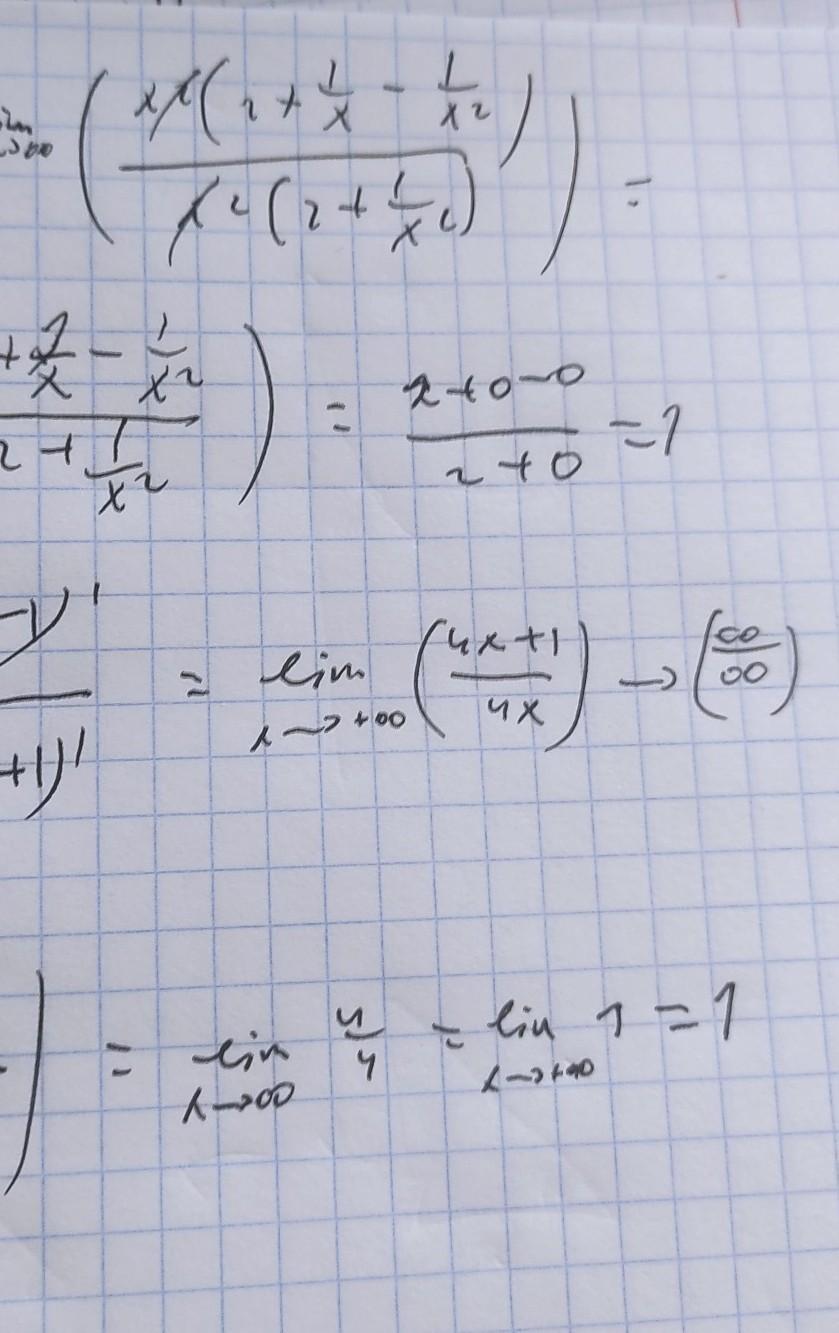 lim x→∞ ( x²(2 + 1/x - 1/x²) / x²(2 + 1/x²) ) =
+ 1/x - 1/x² / 2 + 1/x² ) = 2+0-0 / 2+0 = 1
-1)' / +1)' = lim x→+∞ ( 4x+1 / 4x ) → ( ∞/∞ )
) = lim x→∞ 4/4 = lim x→+∞ 1 = 1